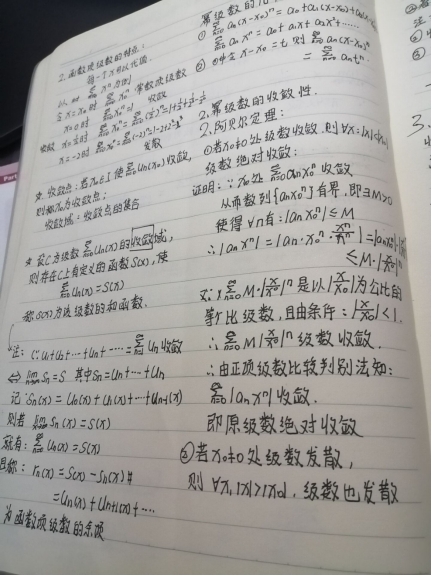 2.函数项级数的特点:
每一个x可以代值.
以,ⁿ⁼⁰∑^∞ xⁿ为例
x=0时 常数项级数
收敛
x=-2时 发散
☆ 收敛点:若x₀∈I 使∑_{n=0}^∞ Un(x₀)收敛,
则称x₀为收敛点;
收敛域:收敛点的集合
☆ 设C为级数∑_{n=0}^∞ Un(x)的收敛域,
则存在C上有定义的函数S(x),使
∑_{n=0}^∞ Un(x)=S(x)
称S(x)为该级数的和函数.
注:∵U₁+U₂+…+Un+…=∑Un收敛
⇔ lim Sn=S 其中Sn=U₁+…+Un
记:Sn(x)=U₀(x)+U₁(x)+…+Un-1(x)
则若 lim Sn(x)=S(x)
就有:∑_{n=0}^∞ Un(x)=S(x)
且称:rn(x)=S(x)-Sn(x)
=Un(x)+Un+1(x)+…
为函数项级数的余项
① ∑_{n=0}^∞ an(x-x₀)ⁿ=a₀+a₁(x-x₀)+
∑_{n=0}^∞ anxⁿ=a₀+a₁x+a₂x²+……
② ①中立x-x₀=t 则∑_{n=0}^∞ an(x-x₀)ⁿ
=∑_{n=0}^∞ antⁿ
2.幂级数的收敛性.
2.阿贝尔定理:
①若x₀≠0处级数收敛.则∀x=|x|<|x₀|
级数绝对收敛:
证明:∵x₀处∑_{n=0}^∞ anx₀ⁿ收敛
从而数列{anx₀ⁿ}有界,即∃M>0
使得∀n有:|anx₀ⁿ|≤M
∴|anxⁿ|=|an·x₀ⁿ·xⁿ/x₀ⁿ|=|anx₀ⁿ|
≤M·|x/x₀|ⁿ
又∵∑_{n=0}^∞ M·|x/x₀|ⁿ是以|x/x₀|为公比的
等比级数,且由条件:|x/x₀|<1.
∴∑_{n=0}^∞ M|x/x₀|ⁿ级数收敛.
∴由正项级数比较判别法知:
∑_{n=0}^∞|anxⁿ|收敛.
即原级数绝对收敛
②若x₀≠0处级数发散,
则∀x,|x|>|x₀|.级数也发散
3.